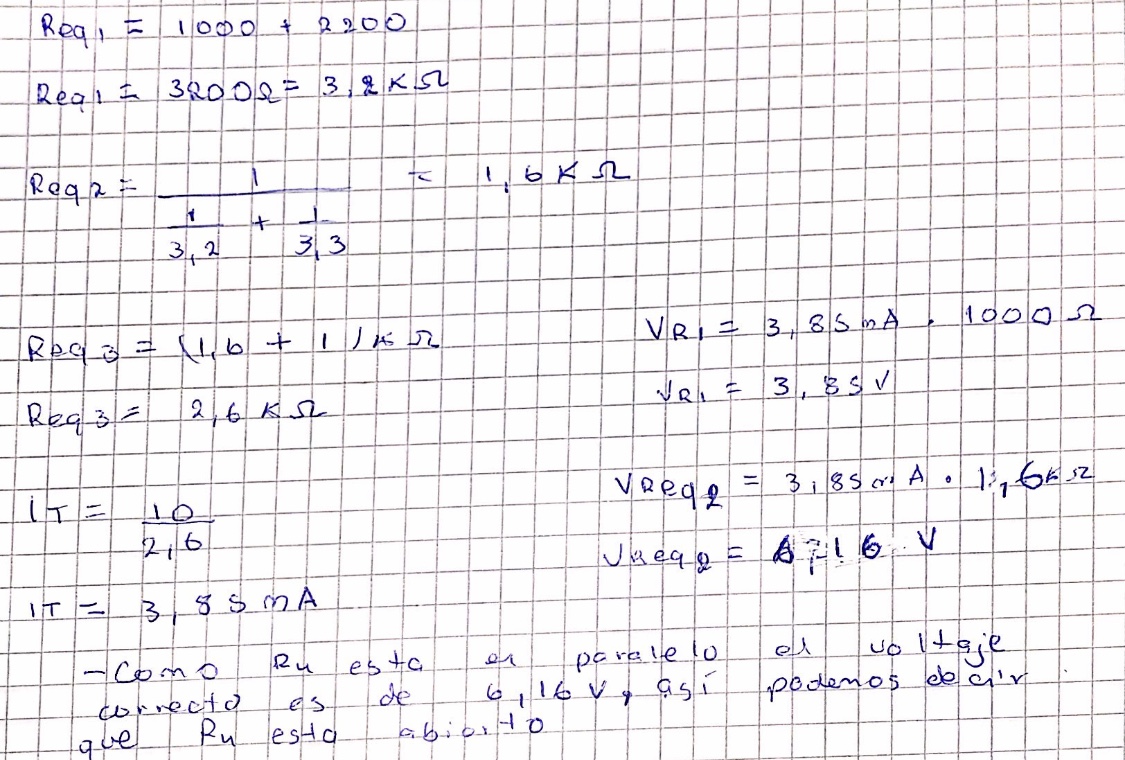 Req1 = 1000 + 2200
Req1 = 3200Ω = 3,2KΩ
Req2 = 1 / (1/3,2 + 1/3,3) = 1,6KΩ
Req3 = (1,6 + 1)KΩ
Req3 = 2,6KΩ
IT = 10/2,6
IT = 3,85mA
VR1 = 3,85mA . 1000Ω
VR1 = 3,85V
VReq2 = 3,85mA . 1,6KΩ
VReq2 = 6,16 V
- Como Ru esta en paralelo el voltaje
correcto es de 6,16V, así podemos decir
que Ru esta abierto